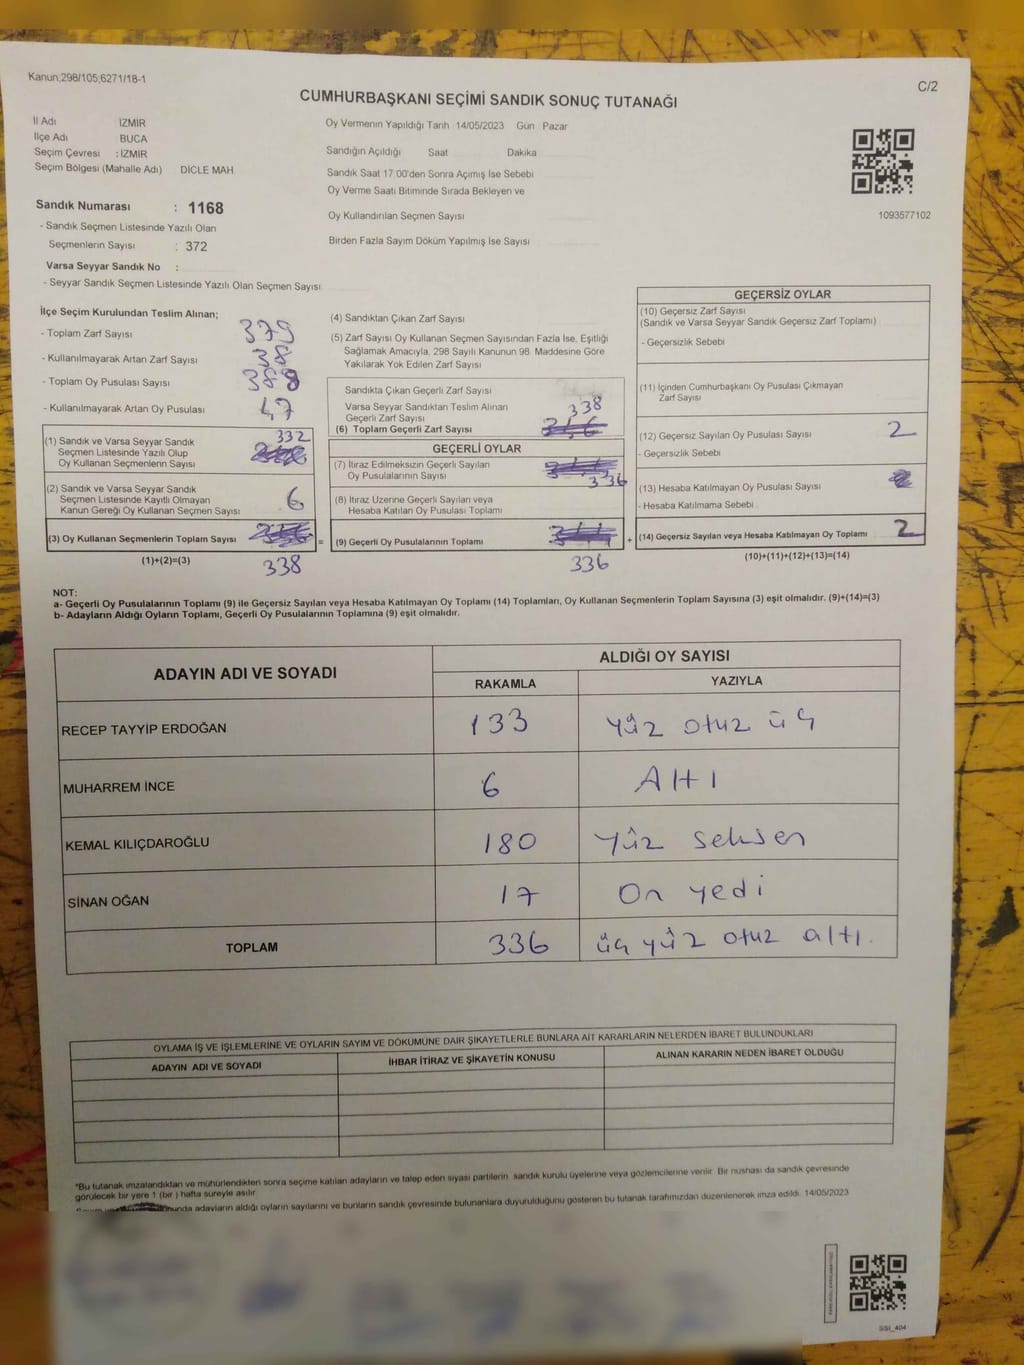 Kanun;298/105;6271/18-1
C/2
CUMHURBAŞKANI SEÇİMİ SANDIK SONUÇ TUTANAĞI
İl Adı İZMİR
İlçe Adı BUCA
Seçim Çevresi : İZMİR
Seçim Bölgesi (Mahalle Adı) DİCLE MAH
Oy Vermenin Yapıldığı Tarih 14/05/2023 Gün Pazar
Sandığın Açıldığı Saat Dakika
Sandık Saat 17:00'den Sonra Açımış İse Sebebi
Oy Verme Saati Bitiminde Sırada Bekleyen ve
Oy Kullandırılan Seçmen Sayısı
Birden Fazla Sayım Döküm Yapılmış İse Sayısı :
1093577102
Sandık Numarası : 1168
- Sandık Seçmen Listesinde Yazılı Olan
Seçmenlerin Sayısı : 372
Varsa Seyyar Sandık No :
- Seyyar Sandık Seçmen Listesinde Yazılı Olan Seçmen Sayısı
İlçe Seçim Kurulundan Teslim Alınan;
- Toplam Zarf Sayısı 379
- Kullanılmayarak Artan Zarf Sayısı 38
- Toplam Oy Pusulası Sayısı
- Kullanılmayarak Artan Oy Pusulası 47
(1) Sandık ve Varsa Seyyar Sandık 332
Seçmen Listesinde Yazılı Olup
Oy Kullanan Seçmenlerin Sayısı
(2) Sandık ve Varsa Seyyar Sandık
Seçmen Listesinde Kayıtlı Olmayan 6
Kanun Gereği Oy Kullanan Seçmen Sayısı
(3) Oy Kullanan Seçmenlerin Toplam Sayısı =
(1)+(2)=(3) 338
(4) Sandıktan Çıkan Zarf Sayısı
(5) Zarf Sayısı Oy Kullanan Seçmen Sayısından Fazla İse, Eşitliği
Sağlamak Amacıyla, 298 Sayılı Kanunun 98. Maddesine Göre
Yakılarak Yok Edilen Zarf Sayısı
Sandıkta Çıkan Geçerli Zarf Sayısı
Varsa Seyyar Sandıktan Teslim Alınan 338
Geçerli Zarf Sayısı
(6) Toplam Geçerli Zarf Sayısı
GEÇERLİ OYLAR
(7) İtiraz Edilmeksizin Geçerli Sayılan
Oy Pusulalarının Sayısı 336
(8) İtiraz Üzerine Geçerli Sayılan veya
Hesaba Katılan Oy Pusulası Toplamı
(9) Geçerli Oy Pusulalarının Toplamı +
336
GEÇERSİZ OYLAR
(10) Geçersiz Zarf Sayısı
(Sandık ve Varsa Seyyar Sandık Geçersiz Zarf Toplamı)
- Geçersizlik Sebebi
(11) İçinden Cumhurbaşkanı Oy Pusulası Çıkmayan
Zarf Sayısı
(12) Geçersiz Sayılan Oy Pusulası Sayısı 2
- Geçersizlik Sebebi
(13) Hesaba Katılmayan Oy Pusulası Sayısı
- Hesaba Katılmama Sebebi
(14) Geçersiz Sayılan veya Hesaba Katılmayan Oy Toplamı 2
(10)+(11)+(12)+(13)=(14)
NOT:
a- Geçerli Oy Pusulalarının Toplamı (9) ile Geçersiz Sayılan veya Hesaba Katılmayan Oy Toplamı (14) Toplamları, Oy Kullanan Seçmenlerin Toplam Sayısına (3) eşit olmalıdır. (9)+(14)=(3)
b- Adayların Aldığı Oyların Toplamı, Geçerli Oy Pusulalarının Toplamına (9) eşit olmalıdır.
ADAYIN ADI VE SOYADI ALDIĞI OY SAYISI
RAKAMLA YAZIYLA
RECEP TAYYİP ERDOĞAN 133 yüz otuz üç
MUHARREM İNCE 6 Altı
KEMAL KILIÇDAROĞLU 180 yüz seksen
SİNAN OĞAN 17 On yedi
TOPLAM 336 üç yüz otuz altı.
OYLAMA İŞ VE İŞLEMLERİNE VE OYLARIN SAYIM VE DÖKÜMÜNE DAİR ŞİKAYETLERLE BUNLARA AİT KARARLARIN NELERDEN İBARET BULUNDUKLARI
ADAYIN ADI VE SOYADI İHBAR İTİRAZ VE ŞİKAYETİN KONUSU ALINAN KARARIN NEDEN İBARET OLDUĞU
*Bu tutanak imzalandıktan ve mühürlendikten sonra seçime katılan adayların ve talep eden siyasi partilerin sandık kurulu üyelerine veya gözlemcilerine verilir. Bir nüshası da sandık çevresinde
görülecek bir yere 1 (bir ) hafta süreyle asılır.
adayların aldığı oyların sayılarını ve bunların sandık çevresinde bulunanlara duyurulduğunu gösteren bu tutanak tarafımızdan düzenlenerek imza edildi. 14/05/2023
SSI_404